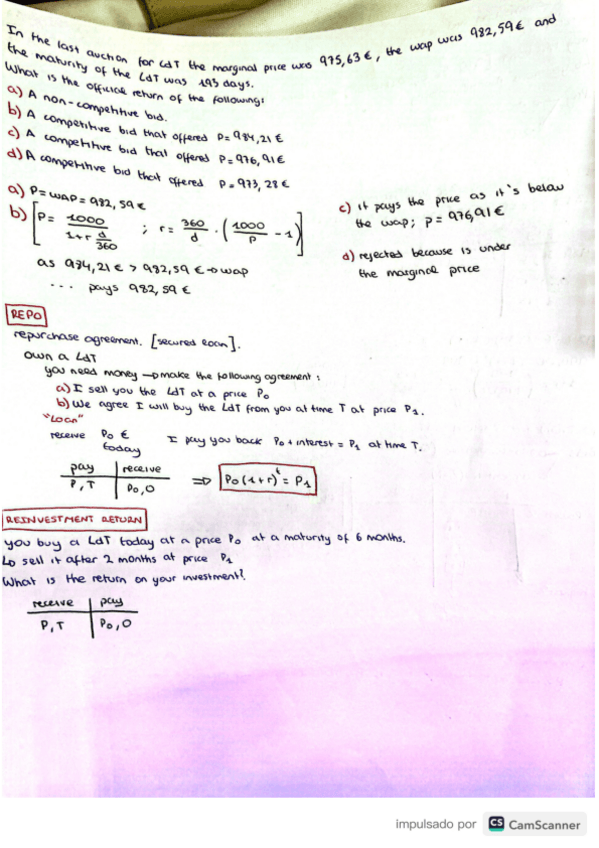 In the last auction for LdT the marginal price was 975,63€, the wap was 982,59€ and
the maturity of the LdT was 193 days.
What is the official return of the following:
a) A non-competitive bid.
b) A competitive bid that offered P=984,21 €
c) A competitive bid that offered P=976,91€
d) A competitive bid that offered P=973,28 €
a) P=WAP=982,59€
b) [P= 1000 / 1+r d/360 ; r= 360/d · (1000/P - 1)]
as 984,21€ > 982,59€ → wap
... pays 982,59€
c) it pays the price as it's below
the wap; P=976,91€
d) rejected because is under
the marginal price
REPO
repurchase agreement. [secured loan].
own a LdT
you need money → make the following agreement:
a) I sell you the LdT at a price P0
b) We agree I will buy the LdT from you at time T at price P1.
"Loan"
receive P0 € today I pay you back P0 + interest = P1 at time T.
pay | receive
P,T | P0,0 ⇒ P0(1+r)^t = P1
REINVESTMENT RETURN
you buy a LdT today at a price P0 at a maturity of 6 months.
↳ sell it after 2 months at price P1
What is the return on your investment?
receive | pay
P,T | P0,0
impulsado por CS CamScanner